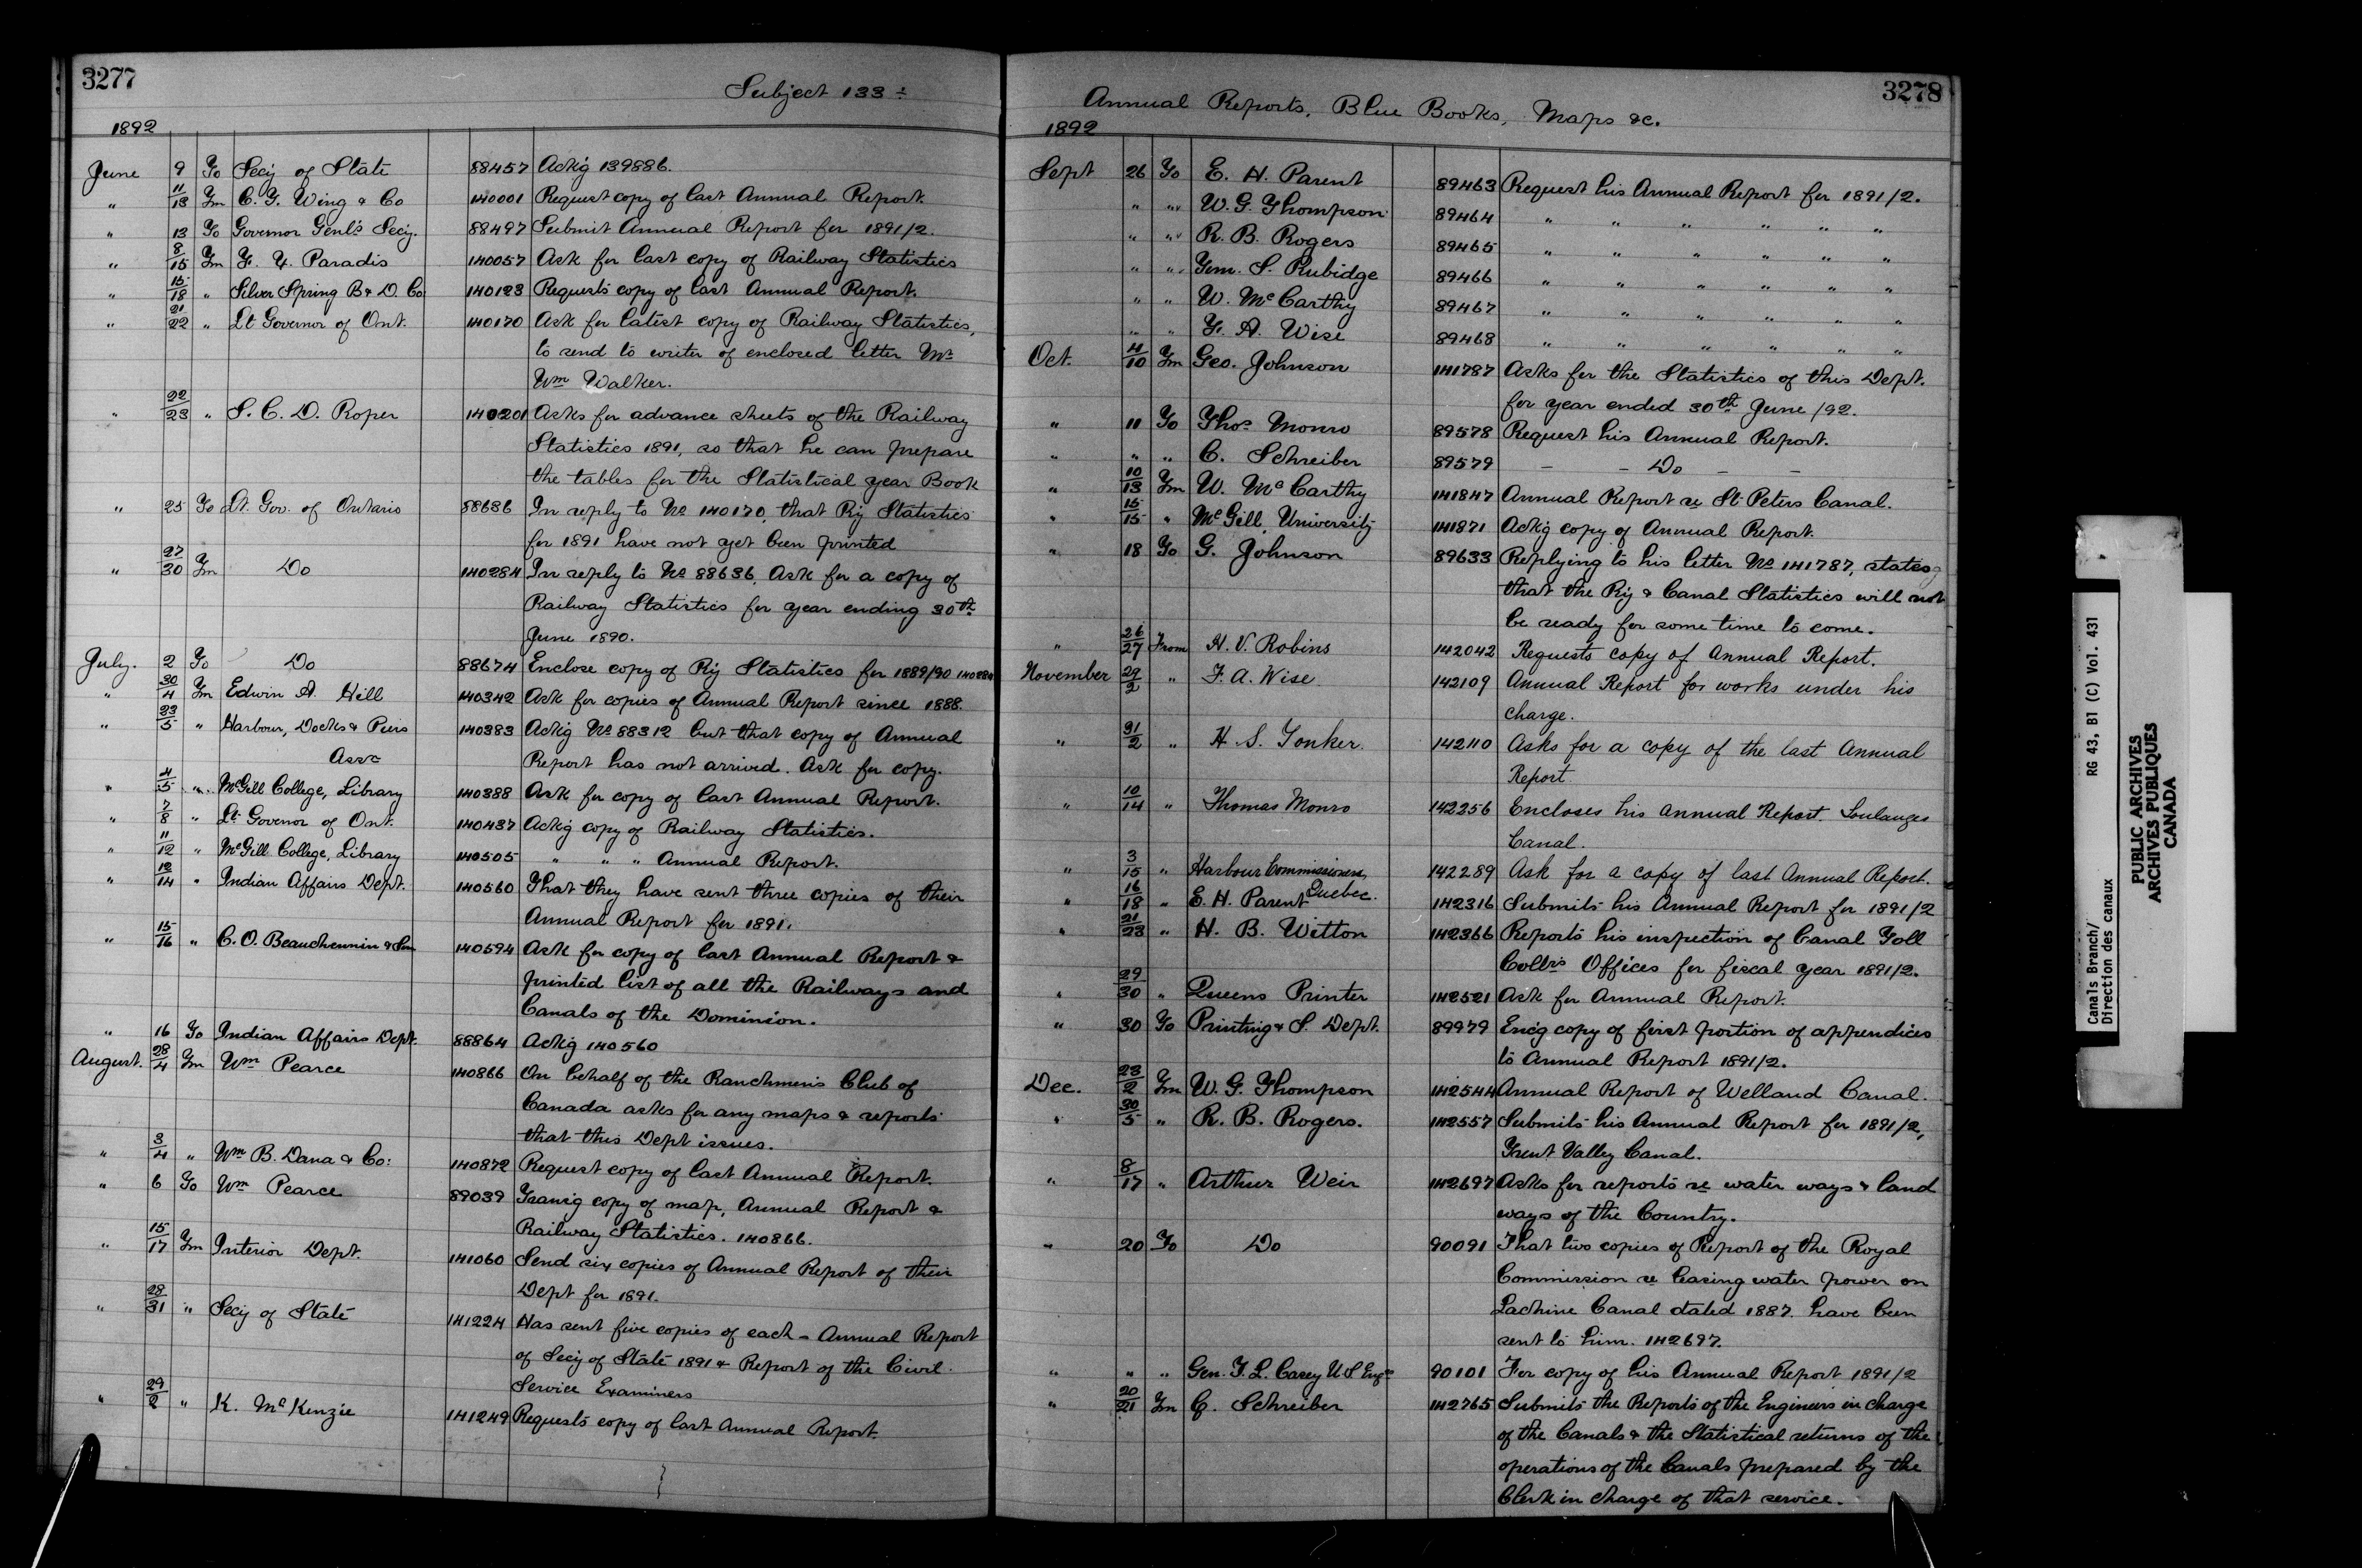 3277
Subject 133
1892
June 9 To Secy of State 88457 Ackg 139886.
" 11/13 Fm C. Y. Wing & Co 140001 Request copy of last Annual Report.
" 13 To Governor Genl's Secy. 88497 Submit Annual Report for 1891/2.
" 8/15 Fm Paradis 140057 Ask for last copy of Railway Statistics
" 15/18 " Silver Spring B & D. Co 140123 Requests copy of last Annual Report.
" 21/22 " Lt Governor of Ont. 140170 Ask for latest copy of Railway Statistics,
to send to writer of enclosed letter Mr
Wm Walker.
" 22/23 " S. C. D. Roper 140201 Asks for advance sheets of the Railway
Statistics 1891, so that he can prepare
the tables for the Statistical year Book
" 25 To Lt. Gov. of Ontario 88636 In reply to No 140170, that Ry Statistics
for 1891 have not yet been printed
" 27/30 Fm Do 140284 In reply to No 88636, Ask for a copy of
Railway Statistics for year ending 30th
June 1890.
July. 2 To Do 88674 Enclose copy of Ry Statistics for 1889/90 140284
" 30/4 Fm Edwin A. Hill 140342 Ask for copies of Annual Report since 1888.
" 23/5 " Harbour, Docks & Piers 140383 Ackg No 88312 but that copy of Annual
Assn Report has not arrived. Ask for copy.
" 4/5 " McGill College, Library 140388 Ask for copy of last Annual Report.
" 7/8 " Lt. Governor of Ont. 140437 Ackg copy of Railway Statistics.
" 11/12 " McGill College, Library 140505 " " " Annual Report.
" 12/14 " Indian Affairs Dept. 140560 That they have sent three copies of their
Annual Report for 1891.
" 15/16 " C. O. Beauchemin & Son 140594 Ask for copy of last Annual Report &
printed list of all the Railways and
Canals of the Dominion.
" 16 To Indian Affairs Dept. 88864 Ackg 140560
August. 28/4 Fm Wm Pearce 140866 On behalf of the Ranchmen's Club of
Canada asks for any maps & reports
that this Dept issues.
" 3/4 " Wm B. Dana & Co: 140872 Request copy of last Annual Report.
" 6 To Wm Pearce 89039 Transg copy of map, Annual Report &
Railway Statistics. 140866.
" 15/17 Fm Interior Dept. 141060 Send six copies of Annual Report of their
Dept for 1891.
" 28/31 " Secy of State 141224 Has sent five copies of each - Annual Report
of Secy of State 1891 & Report of the Civil
Service Examiners
" 29/2 " K. McKenzie 141249 Requests copy of last Annual Report.
3278
Annual Reports, Blue Books, Maps &c.
1892
Sept 26 To E. H. Parent 89463 Request his Annual Report for 1891/2.
" " " W. G. Thompson 89464 " " " " " "
" " " R. B. Rogers 89465 " " " " " "
" " " Tom. S. Rubidge 89466 " " " " " "
" " " W. McCarthy 89467 " " " " " "
" " " F. A. Wise 89468 " " " " " "
Oct. 4/10 Fm Geo. Johnson 141787 Asks for the Statistics of this Dept.
for year ended 30th June /92.
" 11 To Thos Monro 89578 Request his Annual Report.
" " " C. Schreiber 89579 - - Do - -
" 10/13 Fm W. McCarthy 141847 Annual Report re St. Peters Canal.
" 15/15 " McGill University 141871 Ackg copy of Annual Report.
" 18 To G. Johnson 89633 Replying to his letter No 141787, states
that the Ry & Canal Statistics will not
be ready for some time to come.
" 26/27 From H. V. Robins 142042 Requests copy of Annual Report.
November 29/2 " F. A. Wise 142109 Annual Report for works under his
charge.
" 31/2 " H. S. Yonker. 142110 Asks for a copy of the last Annual
Report
" 10/14 " Thomas Monro 142256 Encloses his Annual Report. Soulanges
Canal.
" 3/15 " Harbour Commissioners 142289 Ask for a copy of last Annual Report.
Quebec.
" 16/18 " E. H. Parent 142316 Submits his Annual Report for 1891/2
" 21/23 " H. B. Witton 142366 Reports his inspection of Canal Toll
Collrs Offices for fiscal year 1891/2.
" 29/30 " Queens Printer 142521 Ask for Annual Report.
" 30 To Printing & S. Dept. 89979 Encg copy of first portion of appendices
to Annual Report 1891/2.
Dec. 23/2 Fm W. G. Thompson 142544 Annual Report of Welland Canal.
" 30/5 " R. B. Rogers. 142557 Submits his Annual Report for 1891/2,
Trent Valley Canal.
" 8/17 " Arthur Weir 142697 Asks for reports re water ways & land
ways of the Country.
" 20 To Do 90091 That two copies of Report of the Royal
Commission re leasing water power on
Lachine Canal dated 1887. have been
sent to him. 142697.
" " " Gen. T. L. Casey U S Engr 90101 For copy of his Annual Report 1891/2
" 20/21 Fm C. Schreiber 142765 Submits the Reports of the Engineers in charge
of the Canals & the Statistical returns of the
operations of the Canals prepared by the
Clerk in charge of that service.
Canals Branch/ RG 43, B1 (C) Vol. 431
Direction des canaux
PUBLIC ARCHIVES
ARCHIVES PUBLIQUES
CANADA